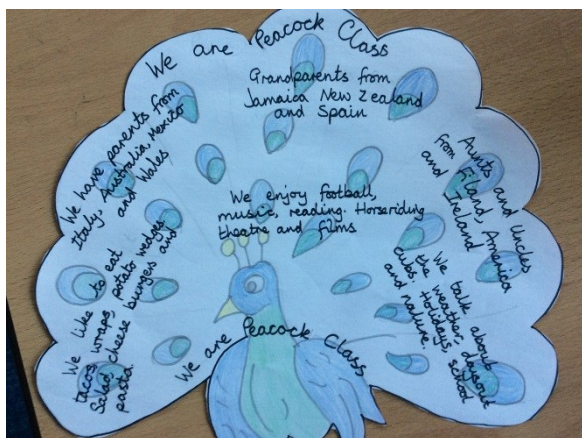 We are Peacock Class
Grandparents from
Jamaica New Zealand
and Spain
We have parents from
Italy, Australia, Mexico
and Wales
Aunts and Uncles
from Filand, America
and Ireland
We enjoy football,
music, reading. Horseriding
theatre and films
We like to eat
tacos, wraps, potato wedges,
Salad, cheese burgers and
pasta
We talk about
the weather, daysout
clubs. Holidays, school
and nature.
We are Peacock Class